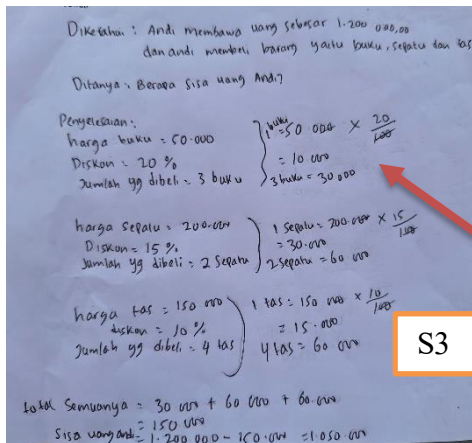 Diketahui : Andi membawa uang sebesar 1.200 000,00
dan andi membeli barang yaitu buku, sepatu dan tas
Ditanya : Berapa sisa uang Andi?
Penyelesaian :
harga buku = 50.000
Diskon = 20 %
Jumlah yg dibeli = 3 buku
1 buku = 50 000 × 20/100
= 10 000
3 buku = 30 000
harga sepatu = 200.000
Diskon = 15 %
Jumlah yg dibeli = 2 sepatu
1 sepatu = 200.000 × 15/100
= 30.000
2 sepatu = 60 000
harga tas = 150 000
diskon = 10 %
Jumlah yg dibeli = 4 tas
1 tas = 150 000 × 10/100
= 15.000
4 tas = 60 000
S3
total semuanya = 30 000 + 60 000 + 60.000
= 150 000
Sisa uang andi = 1.200 000 - 150.000 = 1.050 000